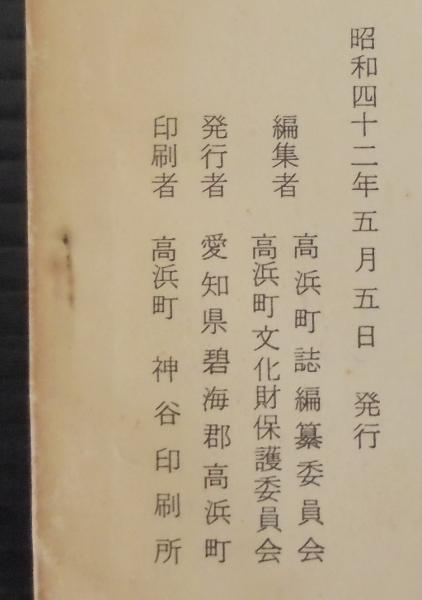 昭和四十二年五月五日　発行
編集者　高浜町誌編纂委員会
高浜町文化財保護委員会
発行者　愛知県碧海郡高浜町
印刷者　高浜町　神谷印刷所